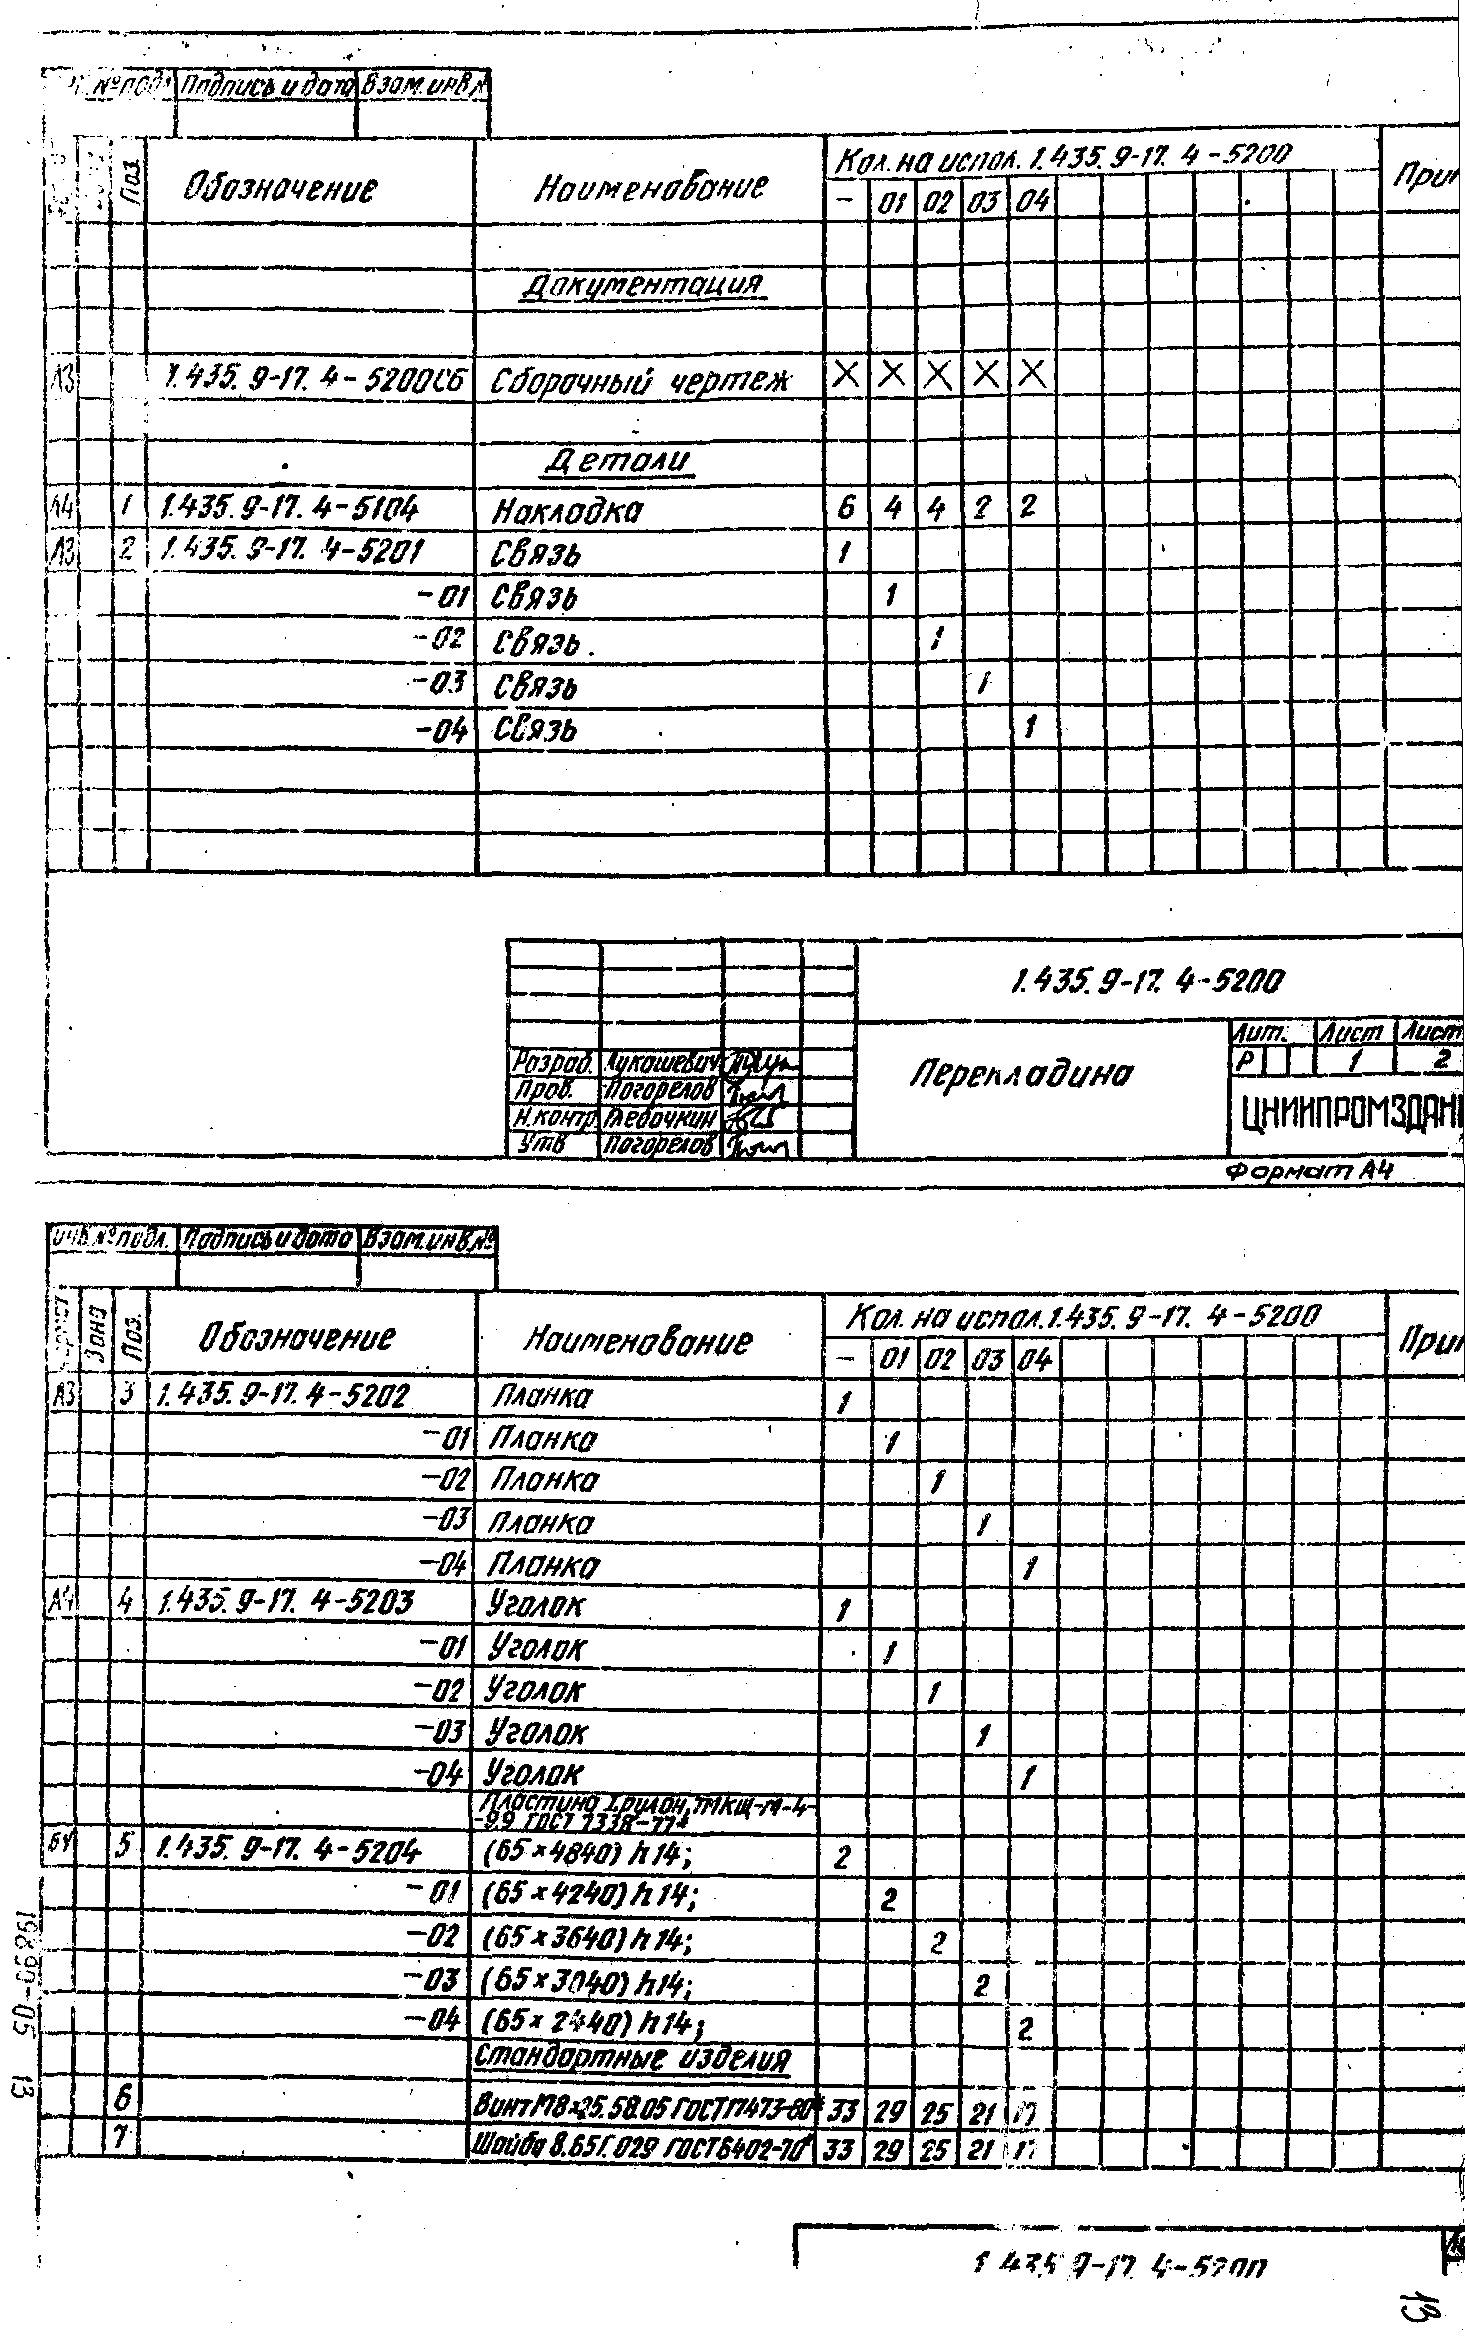 № подл Подпись и дата Взам. инв. №
Поз. Обозначение Наименование Кол. на испол. 1.435.9-17. 4-5200
- 01 02 03 04
Документация
А3 1.435.9-17. 4-5200СБ Сборочный чертеж X X X X X
Детали
А4 1 1.435.9-17. 4-5104 Накладка 6 4 4 2 2
А3 2 1.435.9-17. 4-5201 Связь 1
-01 Связь 1
-02 Связь 1
-03 Связь 1
-04 Связь 1
1.435.9-17. 4-5200
Разраб. Лукашевич
Пров. Погорелов
Н.контр
Утв Погорелов
Перекладина
Лит. Лист Лист
Р 1 2
ЦНИИПРОМЗДАН
Формат А4
Инв. № подл. Подпись и дата Взам. инв. №
Формат Зона Поз. Обозначение Наименование Кол. на испол. 1.435.9-17. 4-5200
- 01 02 03 04
А3 3 1.435.9-17. 4-5202 Планка 1
-01 Планка 1
-02 Планка 1
-03 Планка 1
-04 Планка 1
А4 4 1.435.9-17. 4-5203 Уголок 1
-01 Уголок 1
-02 Уголок 1
-03 Уголок 1
-04 Уголок 1
Пластина I, рулон, ТМКЩ-М-4-
-9,9 ГОСТ 7338-77*
БЧ 5 1.435.9-17. 4-5204 (65×4840) h14; 2
-01 (65×4240) h14; 2
-02 (65×3640) h14; 2
-03 (65×3040) h14; 2
-04 (65×2440) h14; 2
Стандартные изделия
6 Винт М8×25.58.05 ГОСТ 17473-80* 33 29 25 21 17
7 Шайба 8.65Г.029 ГОСТ 6402-70* 33 29 25 21 17
1.435.9-17. 4-5200
13
19890-05 13